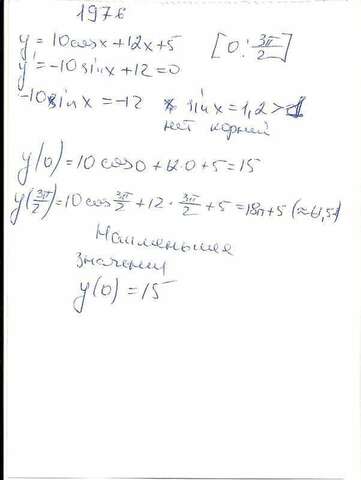 1976
y = 10cosx+12x+5 [0; 3π/2]
y' = -10sinx+12=0
-10sinx=-12 sinx=1,2>1
нет корней
y(0)=10cos0+12·0+5=15
y(3π/2)=10cos3π/2+12·3π/2+5=18π+5 (≈61,5)
Наименьшее
значение
y(0)=15